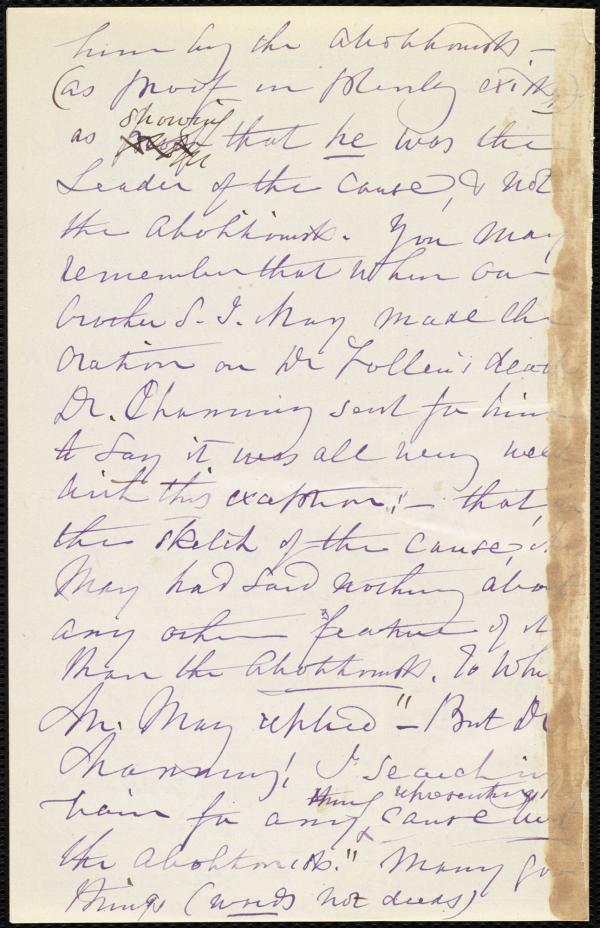 him by the Abolitionists —
(as proof in plenty exists)
showing
as proof that he was the
Leader of the Cause, & not
the Abolitionists. You may
remember that when our
brother S. J. May made the
Oration on Dr Follen's death
Dr. Channing sent for him
to say it was all very well
with this exception; — that, in
the sketch of the Cause, Mr
May had said nothing about
any other feature of it
than the Abolitionists. To which
Mr. May replied "— But Dr
Channing! I search in
vain for any thing representing
cause but
the Abolitionists." Many good
things (words not deeds)